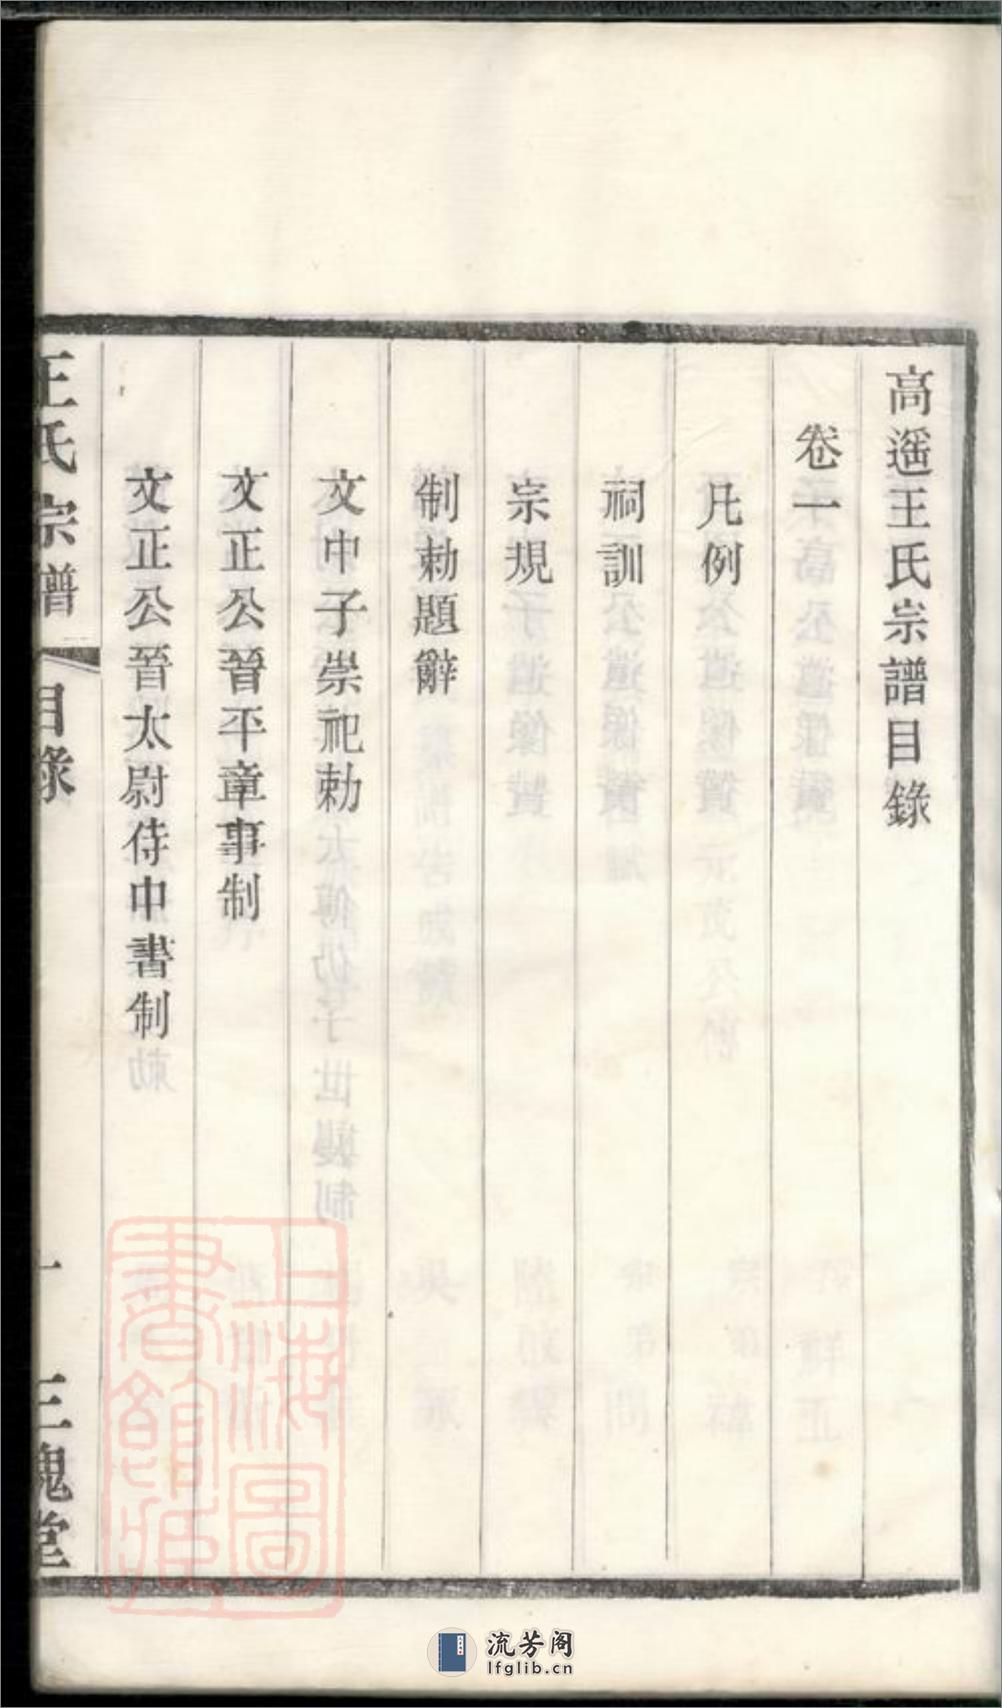 高遥王氏宗譜目錄
卷一
凡例
祠訓
宗規
制勅題辭
文中子崇祀勅
文正公晉平章事制
文正公晉太尉侍中書制
王氏宗譜
目錄
一
三槐堂
上海圖書館藏
流芳阁
lfglib.cn